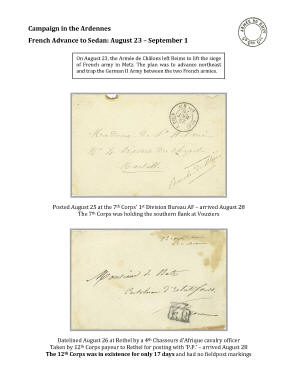 Campaign in the Ardennes
French Advance to Sedan: August 23 – September 1
On August 23, the Armée de Châlons left Reims to lift the siege
of French army in Metz. The plan was to advance northeast
and trap the German II Army between the two French armies.
Posted August 25 at the 7th Corps' 1st Division Bureau AF – arrived August 28
The 7th Corps was holding the southern flank at Vouziers
Monsieur de
P.P.
Datelined August 26 at Rethel by a 4th Chasseurs d'Afrique cavalry officer
Taken by 12th Corps payeur to Rethel for posting with 'P.P.' – arrived August 28
The 12th Corps was in existence for only 17 days and had no fieldpost markings